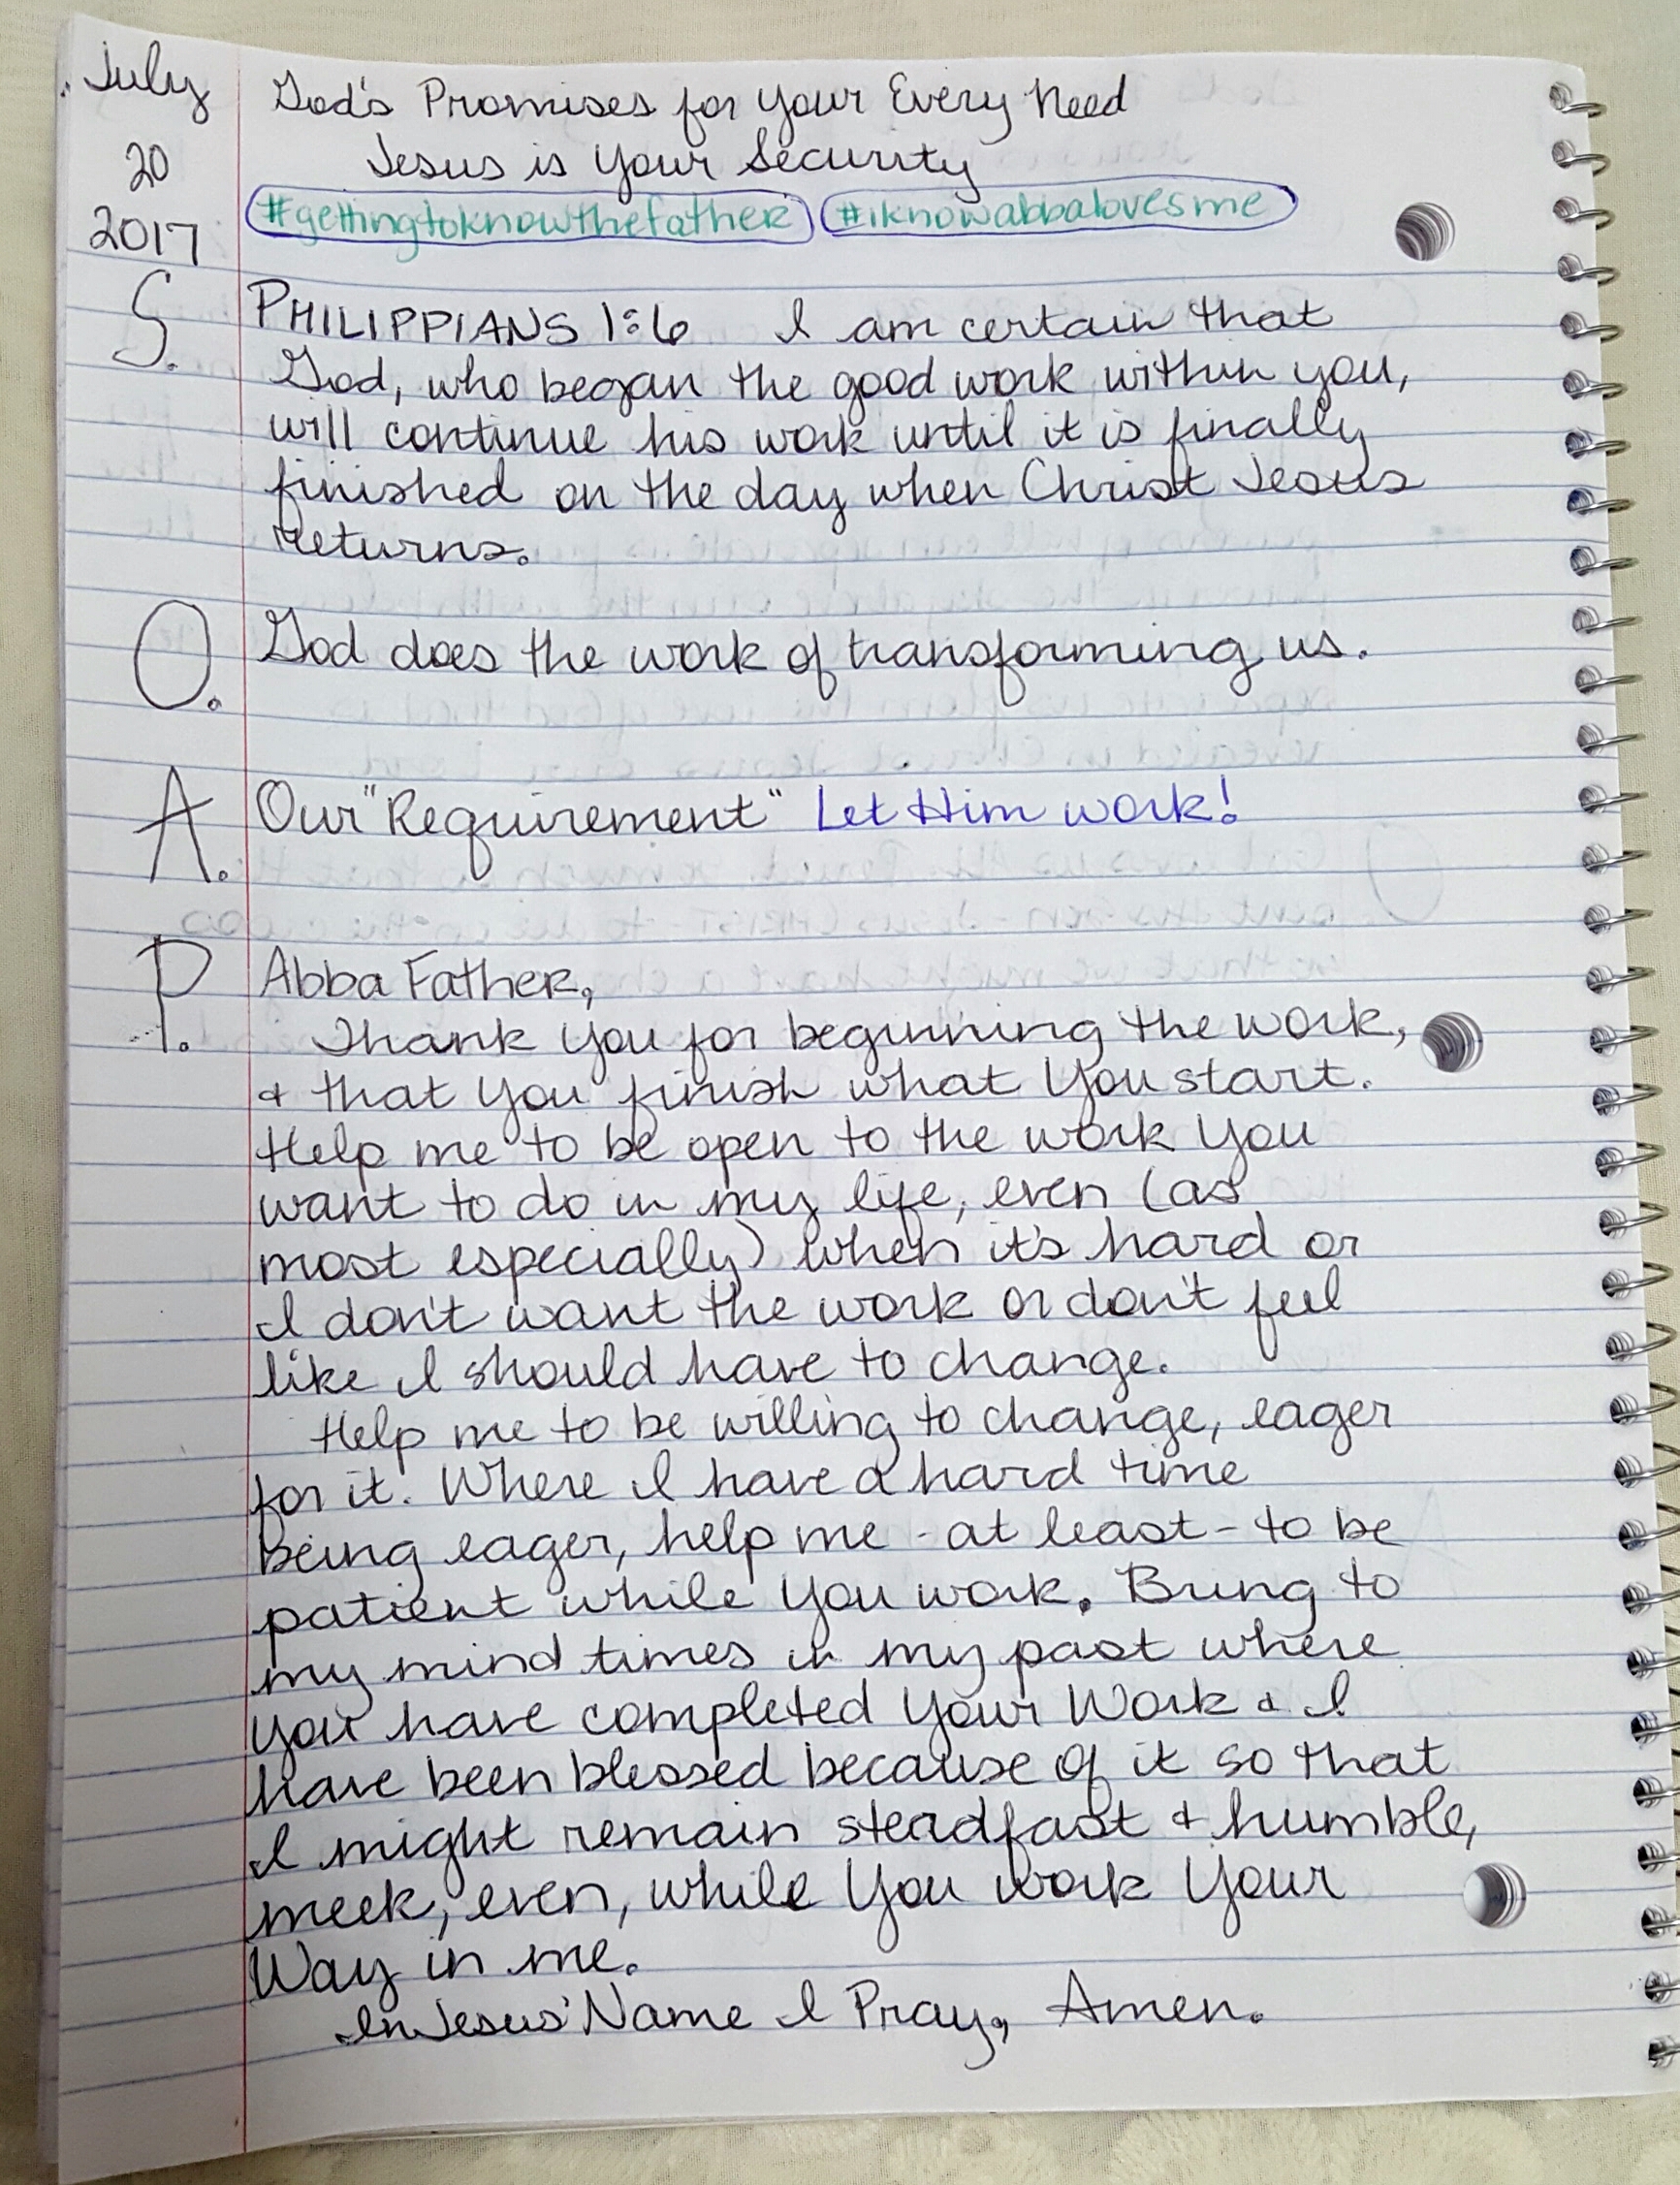 July
20
2017
God's Promises for Your Every Need
Jesus is Your Security
#gettingtoknowthefather #iknowabbalovesme
S.
PHILIPPIANS 1:6 I am certain that
God, who began the good work within you,
will continue his work until it is finally
finished on the day when Christ Jesus
returns.
O.
God does the work of transforming us.
A.
Our "Requirement" Let Him work!
P.
Abba Father,
Thank You for beginning the work,
& that You finish what You start.
Help me to be open to the work You
want to do in my life, even (as
most especially) when it's hard or
I don't want the work or don't feel
like I should have to change.
Help me to be willing to change, eager
for it. Where I have a hard time
being eager, help me - at least - to be
patient while You work. Bring to
my mind times in my past where
You have completed Your Work & I
have been blessed because of it so that
I might remain steadfast & humble,
meek, even, while You work Your
Way in me.
In Jesus' Name I Pray, Amen.